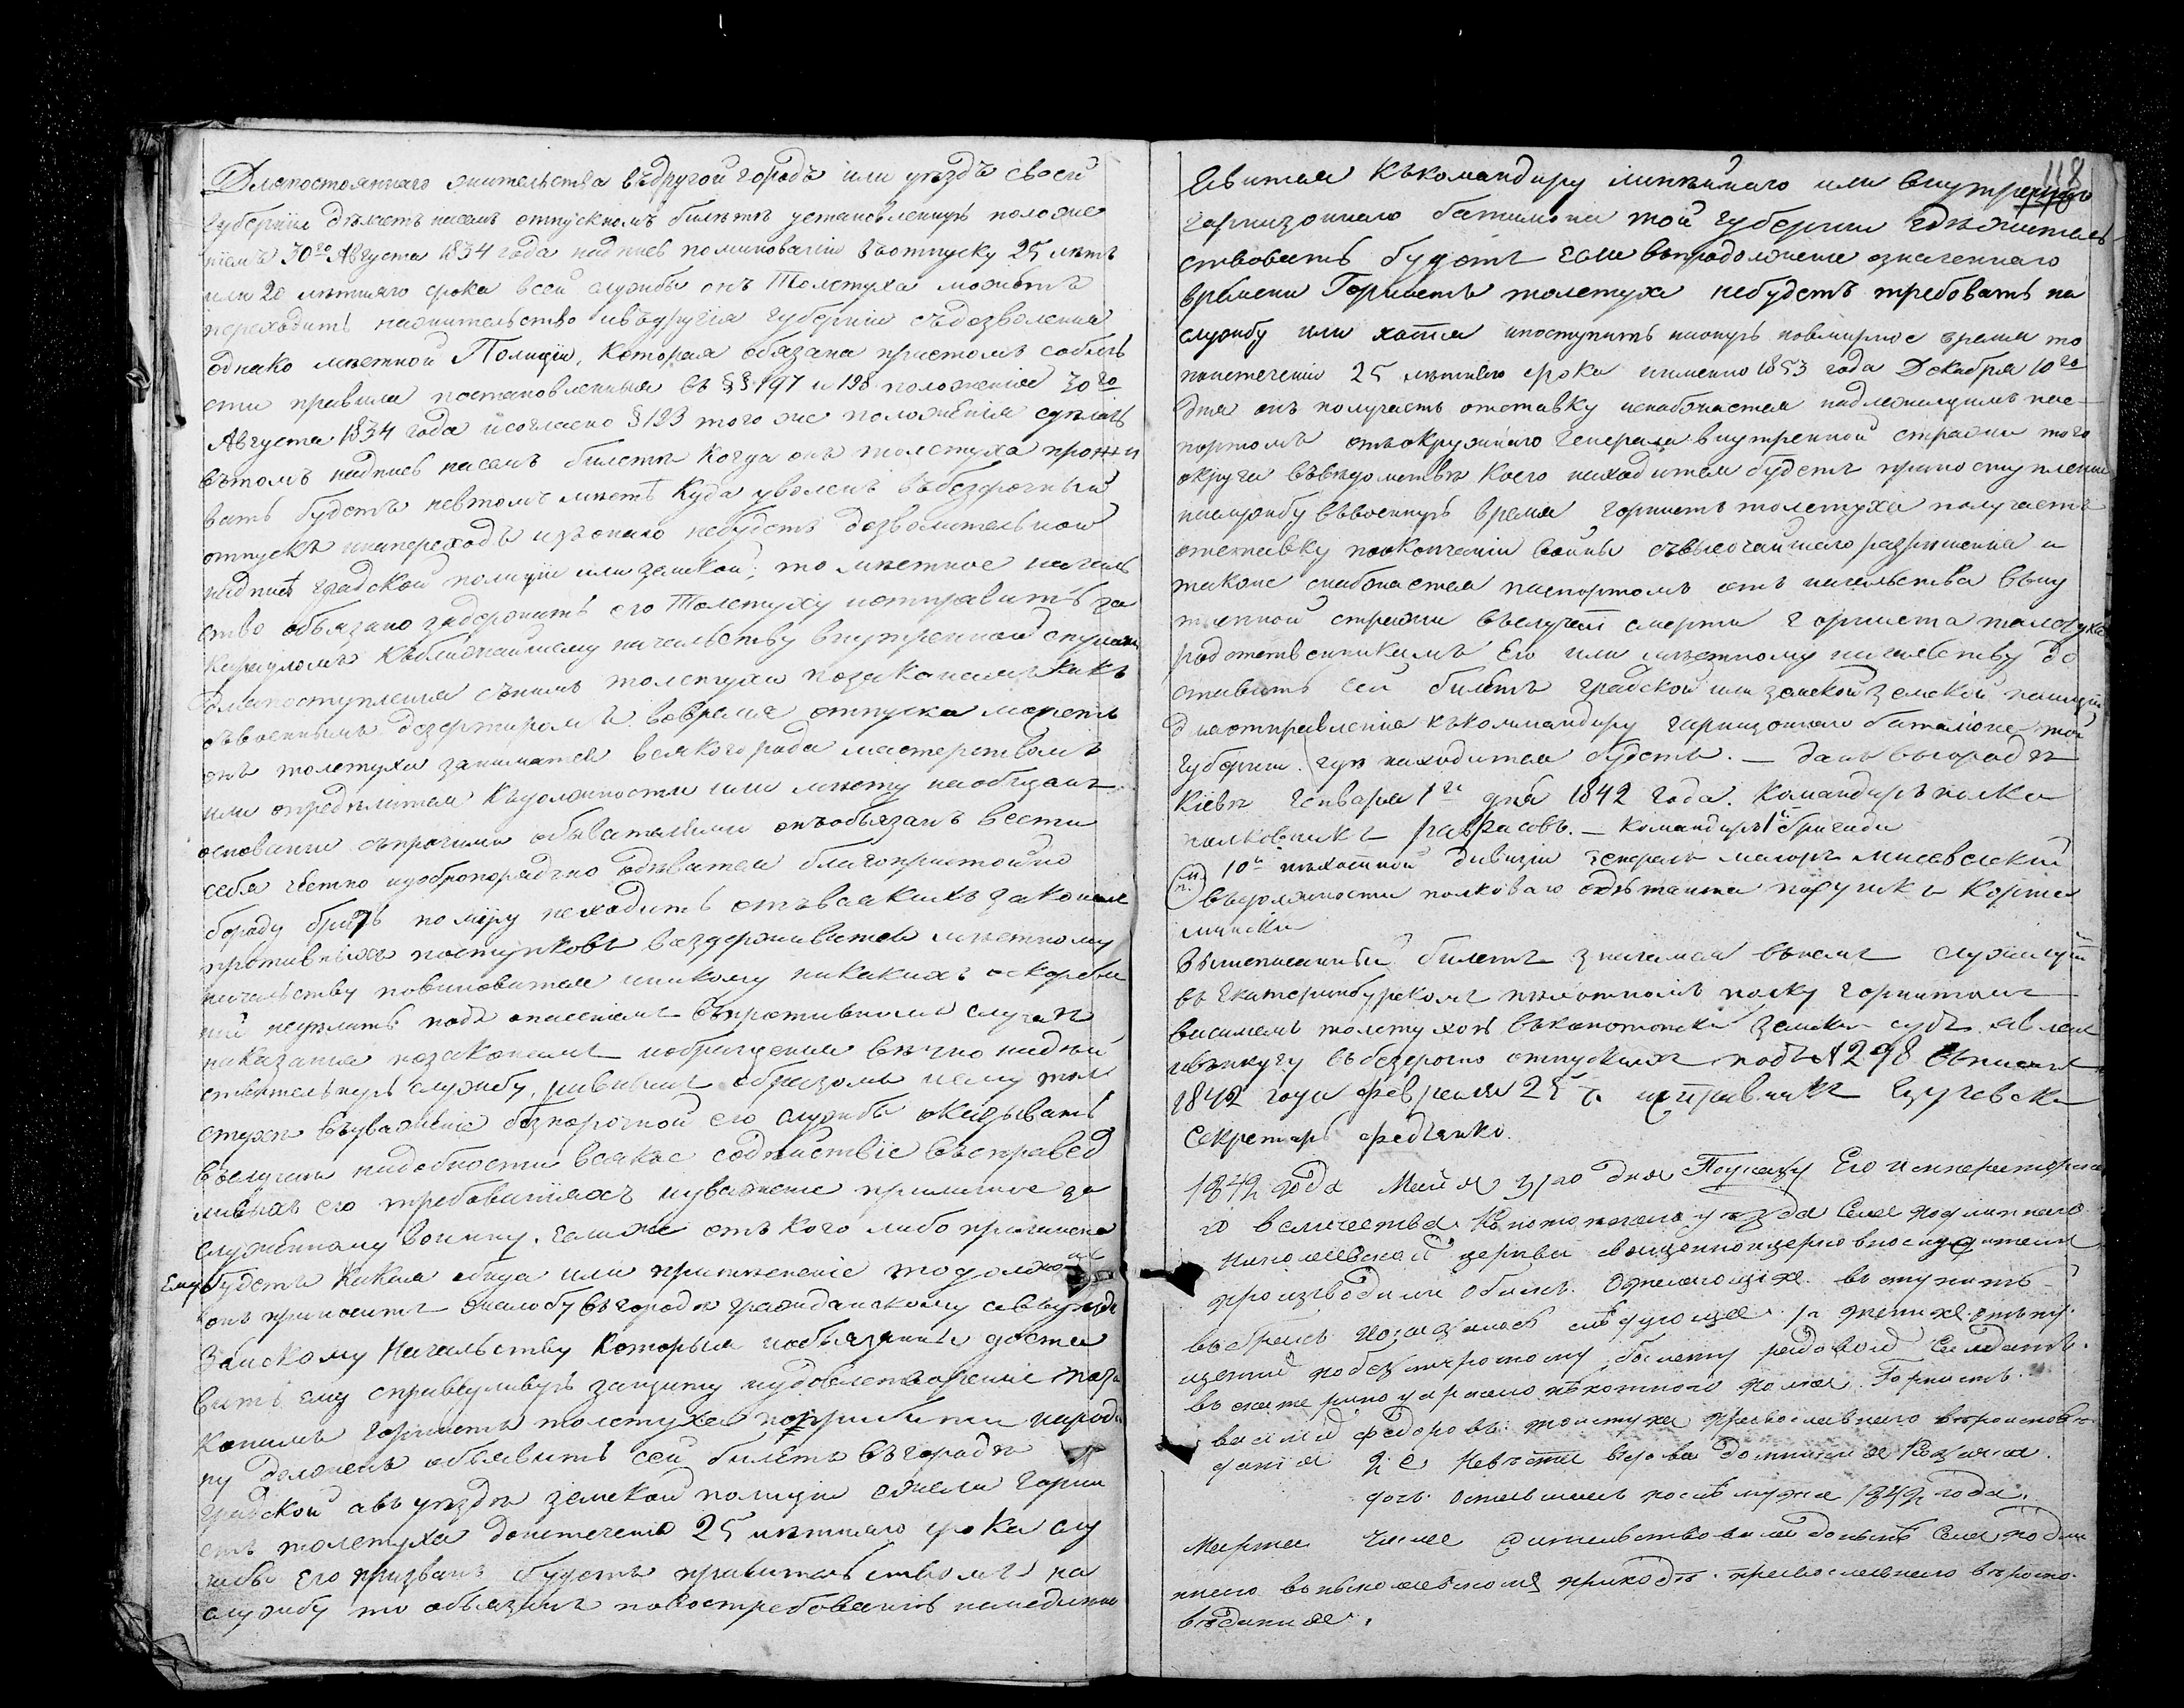 Дляпостояннаго жительства въдругой городъ или уѣздъ своей
губерніи дѣлаетъ насемъ отпускномъ билетѣ установленную положе
ніемъ 30го Августа 1834 года надпись поминованіи въотпуску 25 лѣтъ
или 20 лѣтняго срока всей службы онъ Толстуха можетъ
переходить нажительство ивъдругія губерніи съдозволенія
однако мѣстной Полиціи, которая обязана пристомъ соблю
сти правила постановленныя въ §§ 197 и 198 положенія 30го
Августа 1834 года исогласно § 193 того же положенія сдѣлать
втомъ надпись насемъ билетѣ когда онъ толстуха прожи
вать будетъ невтомъ мѣстѣ куда уволенъ въбезсрочный
отпускъ инапереходъ изъонаго небудетъ дозволительной
надписи градской полиціи или земской; то мѣстное началь
ство обязано задержать его Толстуху иотправить за
карауломъ къближайшему начальству внутренной стражи
дляпоступленія снимъ толстухи позаконамъ какъ
съвоеннымъ дезертиромъ вовремя отпуска можетъ
онъ толстуха заниматся всякогорода мастерствомъ
или опредѣлится къдолжности или мѣсту наобщемъ
основаніи съпрочими обывателями онъобязанъ вести
себя честно идобропорядочно одѣватся благопристойно
бороду брить по міру неходить отъвсякихъ законамъ
противныхъ поступковъ воздерживатся мѣстному
начальству повиноватся иникому никакихъ оскорбле
ній недѣлать подъ опасеніемъ въпротивномъ случаѣ
наказанія позаконамъ иобращенія вѣчно надѣй
ствительную службу, равнымъ образомъ нему тол
стухѣ въуваженіе безпорочной его службы оказывать
въслучаѣ надобности всякое содѣйствіе въсправед
ливыхъ его требованіяхъ иуваженіе приличное за
служенному воину. Если же отъ кого либо причинена
Ему будетъ какая обида или притѣсненіе тодолженъ
онъ приноситъ жалобу вгородѣ гражданскому авъуѣздѣ
Земскому Начальству которыя иобязаны доста
вить ему справедливую защиту иудовлетвореніе поза
конамъ горнистъ толстуха поприбытіи народи
ну долженъ объявить сей билетъ въгородѣ
градской авъ уѣздѣ земской полиціи ежели горни
стъ толстуха доистеченія 25 лѣтняго срока слу
жбы Его призванъ будетъ правительствомъ на
службу то обязанъ повостребованію немедленно
118
Явится къкомандиру линѣйнаго или внутренняго
гарнизоннаго баталіона той губерніи гдѣжитель
ствовать будетъ если впродолженіе означеннаго
времени Горнистъ толстуха небудетъ требовать на
службу или хотя ипоступитъ наоную повмирное время то
поистеченіи 25 лѣтняго срока именно 1853 года Декабря 10го
дня онъ получаетъ отставку иснабжается надлежащимъ пас
портомъ отъокружнаго генерала внутренной стражи того
округа въвѣдомствѣ коего находится будетъ припоступленіи
наслужбу въвоенную время горнистъ толстуха получаетъ
отставку поокончаніи войны съвысочайшаго разрѣшенія и
такоже снабжается паспортомъ отъ начальства вну
тренной стражи въслучаѣ смерти горниста толстуха
родственникамъ Его или мѣстному начальству до
ставить сей билетъ градской или земской земской полиціи
дляотправленія къкоммандиру гарнизоннаго баталіона той
Губерніи гдѣ находится будетъ. — данъ вгородѣ
Кіевѣ Генваря 1го дня 1842 года. Командиръ полка
полковникъ — командиръ 1й бригады
м. п. 10й пѣхотной дивизіи генералъ маіоръ мисевскій
въдолжности полковаго адъютанта поручикъ
Вышеписанный билетъ значимая внемъ служащій
въ Екатеринбурскомъ пѣхотномъ полку горнистомъ
василіемъ толстухой въконотопскій земскій судъ явленъ
ивкнигу въбезсрочно отпускныхъ подъ № 298 вписанъ
1842 года февраля 25 д. исправникъ
Секретарь Федченко.
1842 года Маія 31го дня Поуказу Его Императорска
го величества Конотопскаго уѣзда Села подлипнаго
Николаевской церкви священноцерковнослужители
производили обыскъ ожелающихъ вступить
въбракъ иоказалось слѣдующее. 1е женихъ отпу
щенній побезсрочному билету рядовой Салдатъ
въекатеринбурскаго пѣхотнаго полка Горнистъ
василій федоровъ толстуха православнаго вѣроисповѣ
данія 2е Невѣста вдова Домникія Козачая
дочь оставшаясь послѣ мужа 1842 года
Марта числа жительствовали донынѣ Села подли
пнаго вниколаевскомъ приходѣ православнаго вѣроиспо
вѣданія.